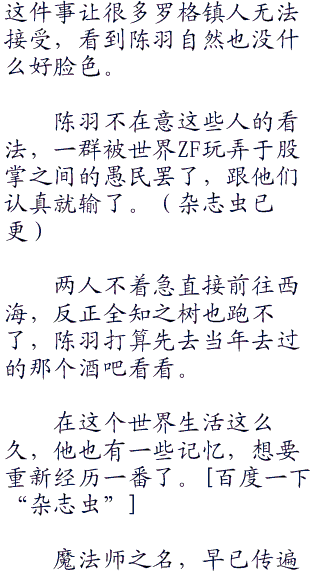 这件事让很多罗格镇人无法
接受，看到陈羽自然也没什
么好脸色。
陈羽不在意这些人的看
法，一群被世界ZF玩弄于股
掌之间的愚民罢了，跟他们
认真就输了。（杂志虫已
更）
两人不着急直接前往西
海，反正全知之树也跑不
了，陈羽打算先去当年去过
的那个酒吧看看。
在这个世界生活这么
久，他也有一些记忆，想要
重新经历一番了。[百度一下
“杂志虫”]
魔法师之名，早已传遍